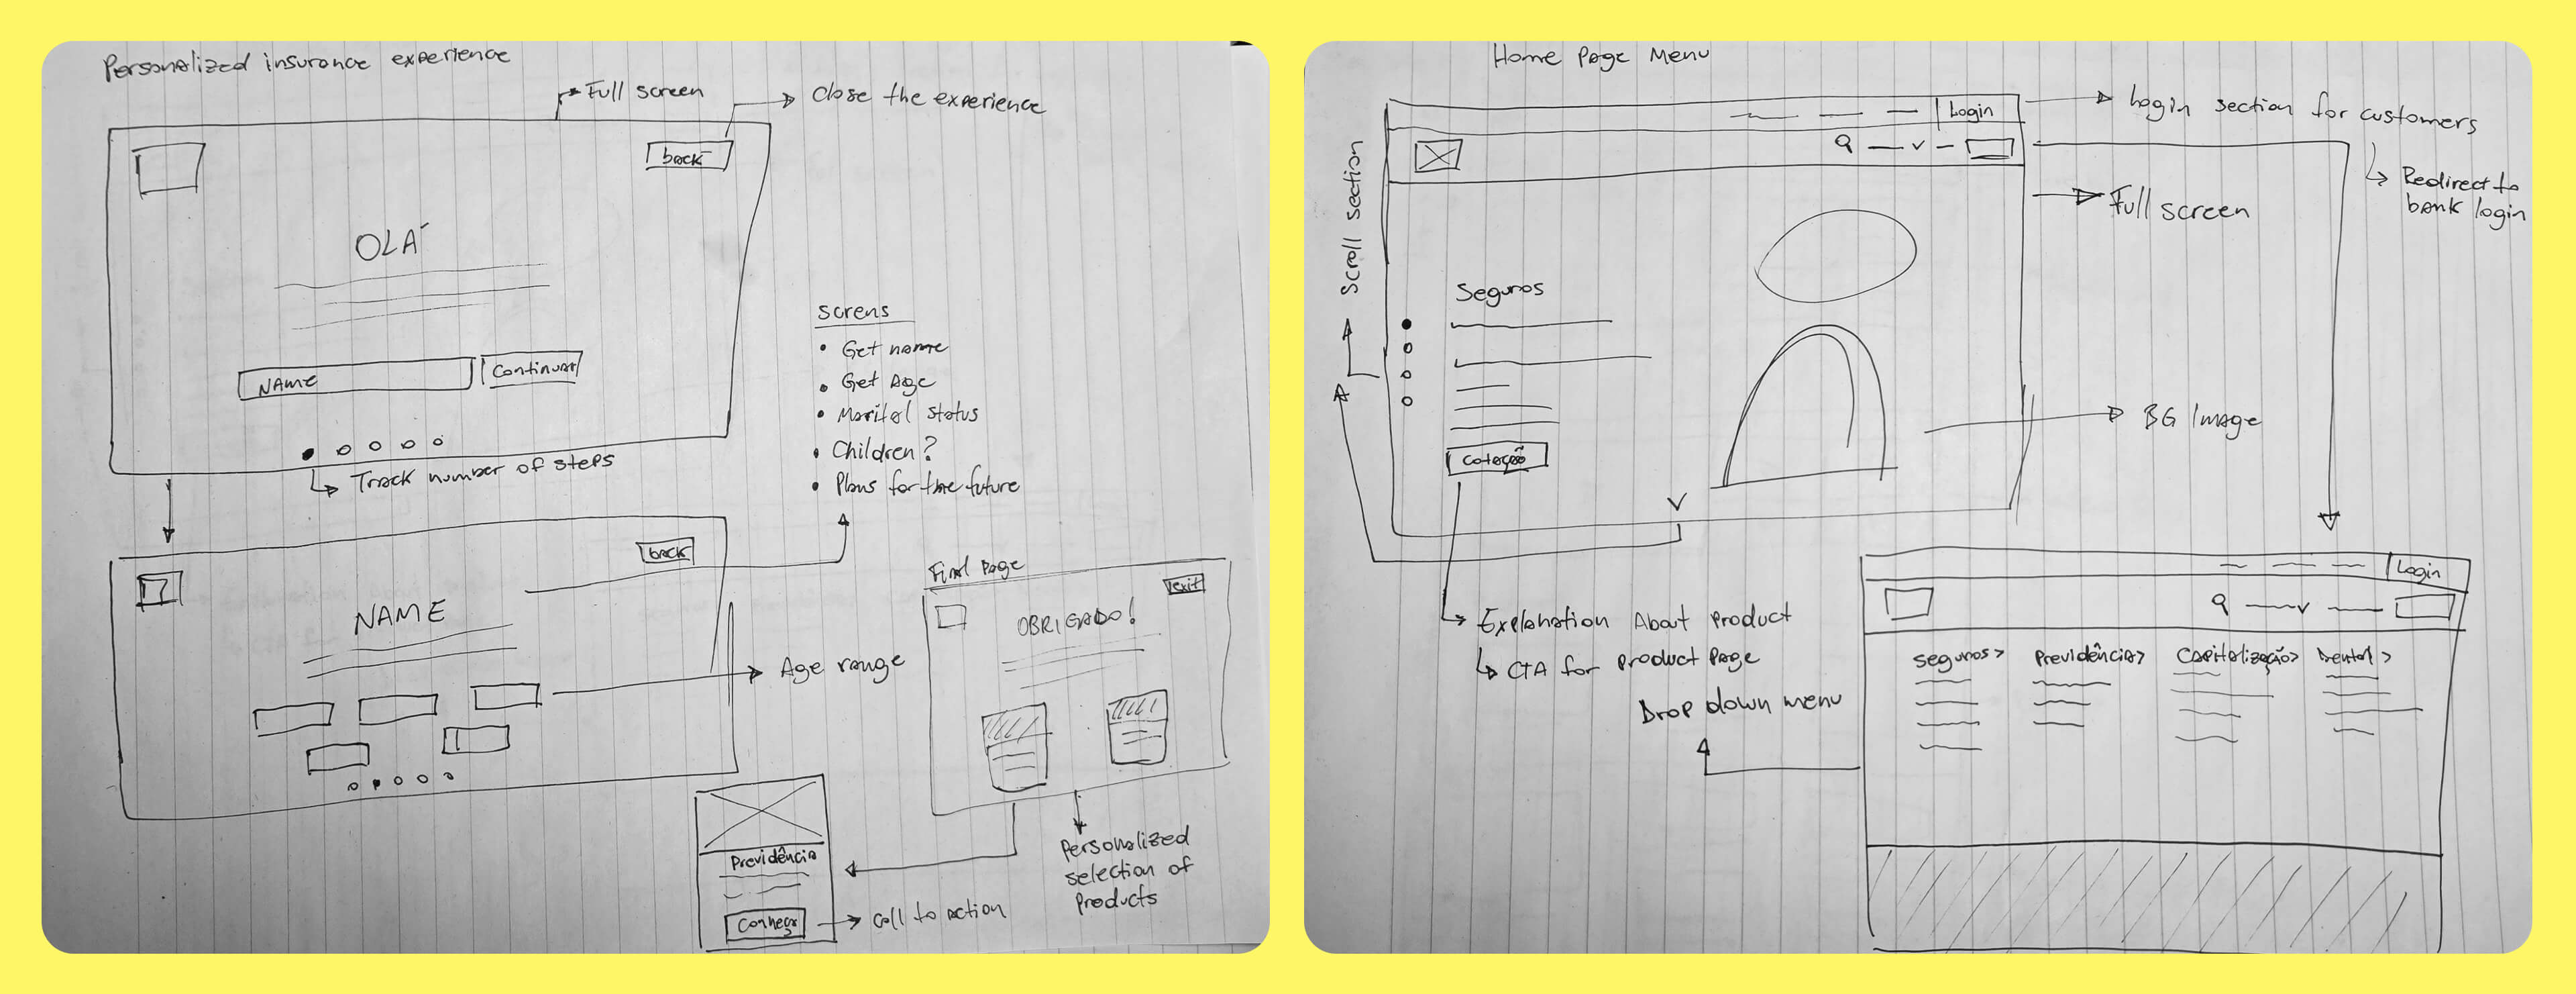 Personalized insurance experience
Full screen
Close the experience
back
OLÁ
NAME
Continuar
Track number of steps
screns
• Get name
• Get Age
• Marital status
• Children?
• Plans for the future
back
NAME
Age range
Final Page
exit
OBRIGADO!
Personalized
selection of
products
Previdência
Conheça
call to action
Home Page Menu
Login
Login section for customers
Redirect to
bank login
Full screen
Scroll section
Seguros
Cotação
BG Image
Explanation About product
CTA for product page
Drop down menu
Login
Seguros >
Previdência >
Capitalização >
Dental >